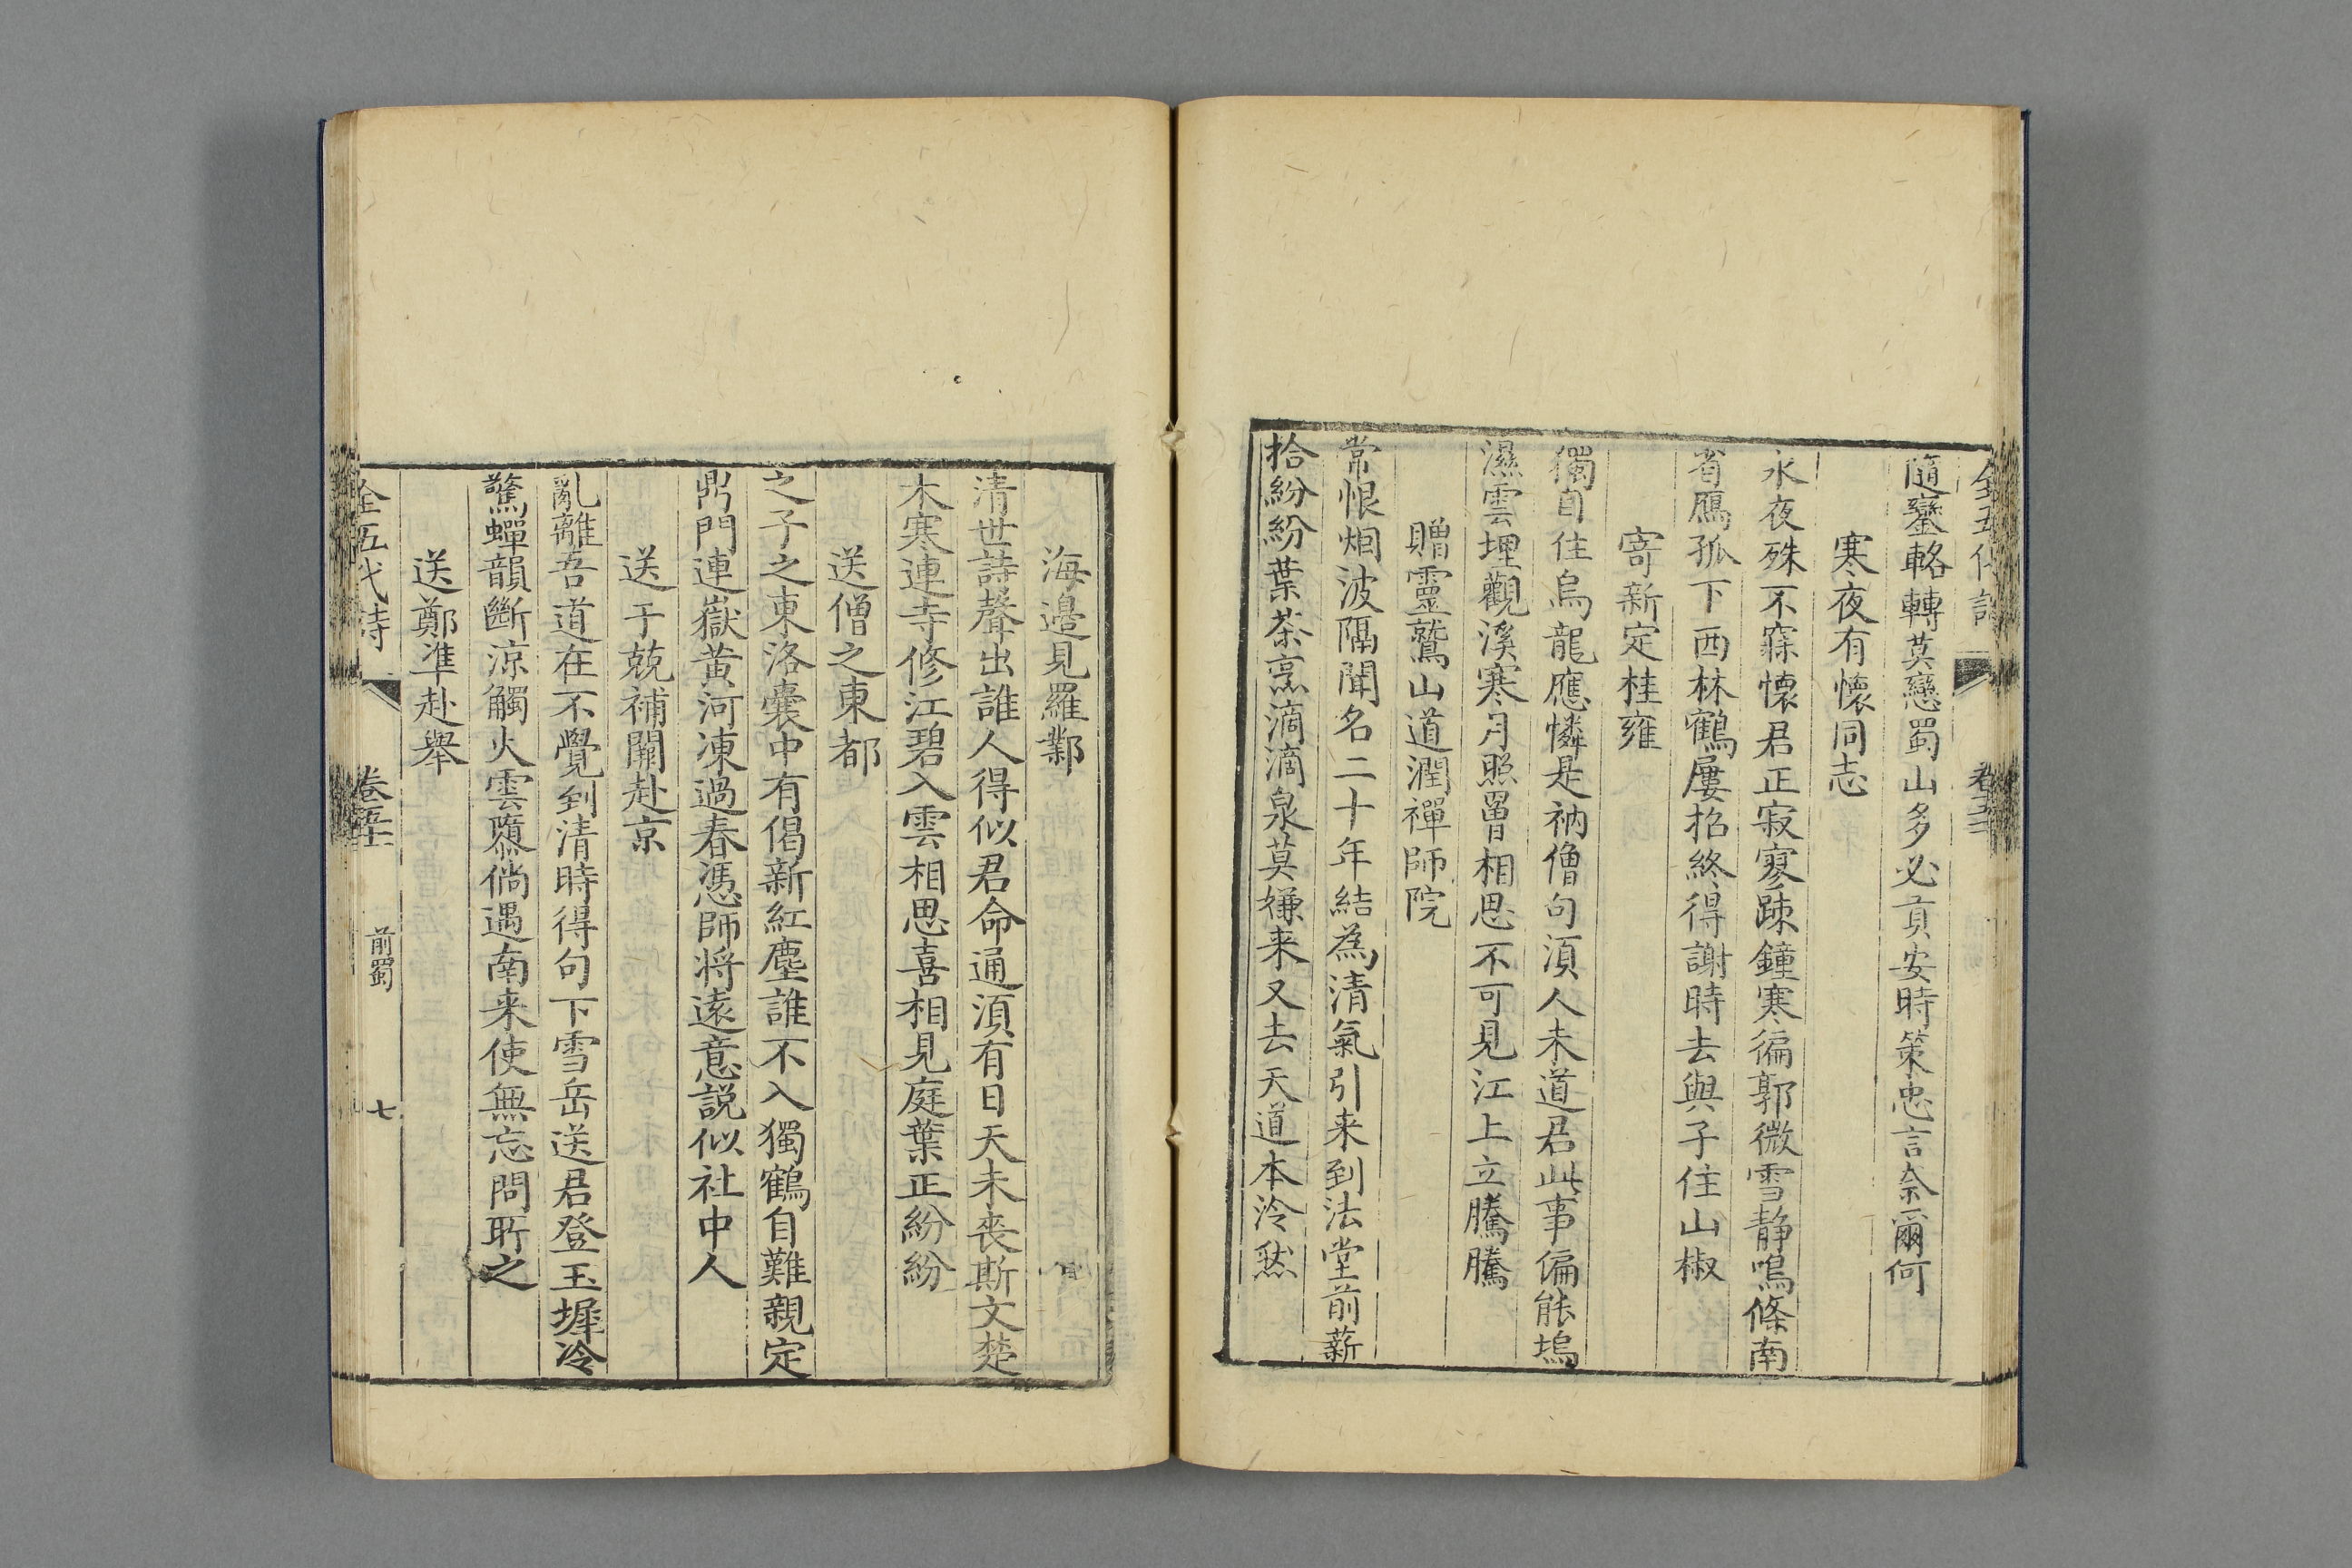 隨鑾輅轉莫戀蜀山多必貢安時策忠言奈爾何
寒夜有懷同志
永夜殊不寐懷君正寂寥踈鐘寒徧郭微雪静鳴條南
省鴈孤下西林鶴屢招終得謝時去與子住山椒
寄新定桂雍
獨自住烏龍應憐是衲僧句須人未道君此事偏能塢
濕雲埋觀溪寒月照罾相思不可見江上立騰騰
贈靈鷲山道潤禪師院
常恨烟波隔聞名二十年結為清氣引来到法堂前薪
拾紛紛葉茶烹滴滴泉莫嫌来又去天道本泠然
海邉見羅鄴
清世詩聲出誰人得似君命通須有日天未喪斯文楚
木寒連寺修江碧入雲相思喜相見庭葉正紛紛
送僧之東都
之子之東洛囊中有偈新紅塵誰不入獨鶴自難親定
鼎門連嶽黄河凍過春憑師將遠意説似社中人
送于兢補闕赴京
亂離吾道在不覺到清時得句下雪岳送君登玉墀冷
驚蟬韻斷涼觸火雲隳倘遇南来使無忘問所之
送鄭凖赴舉
全五代詩 卷五十 前蜀 七